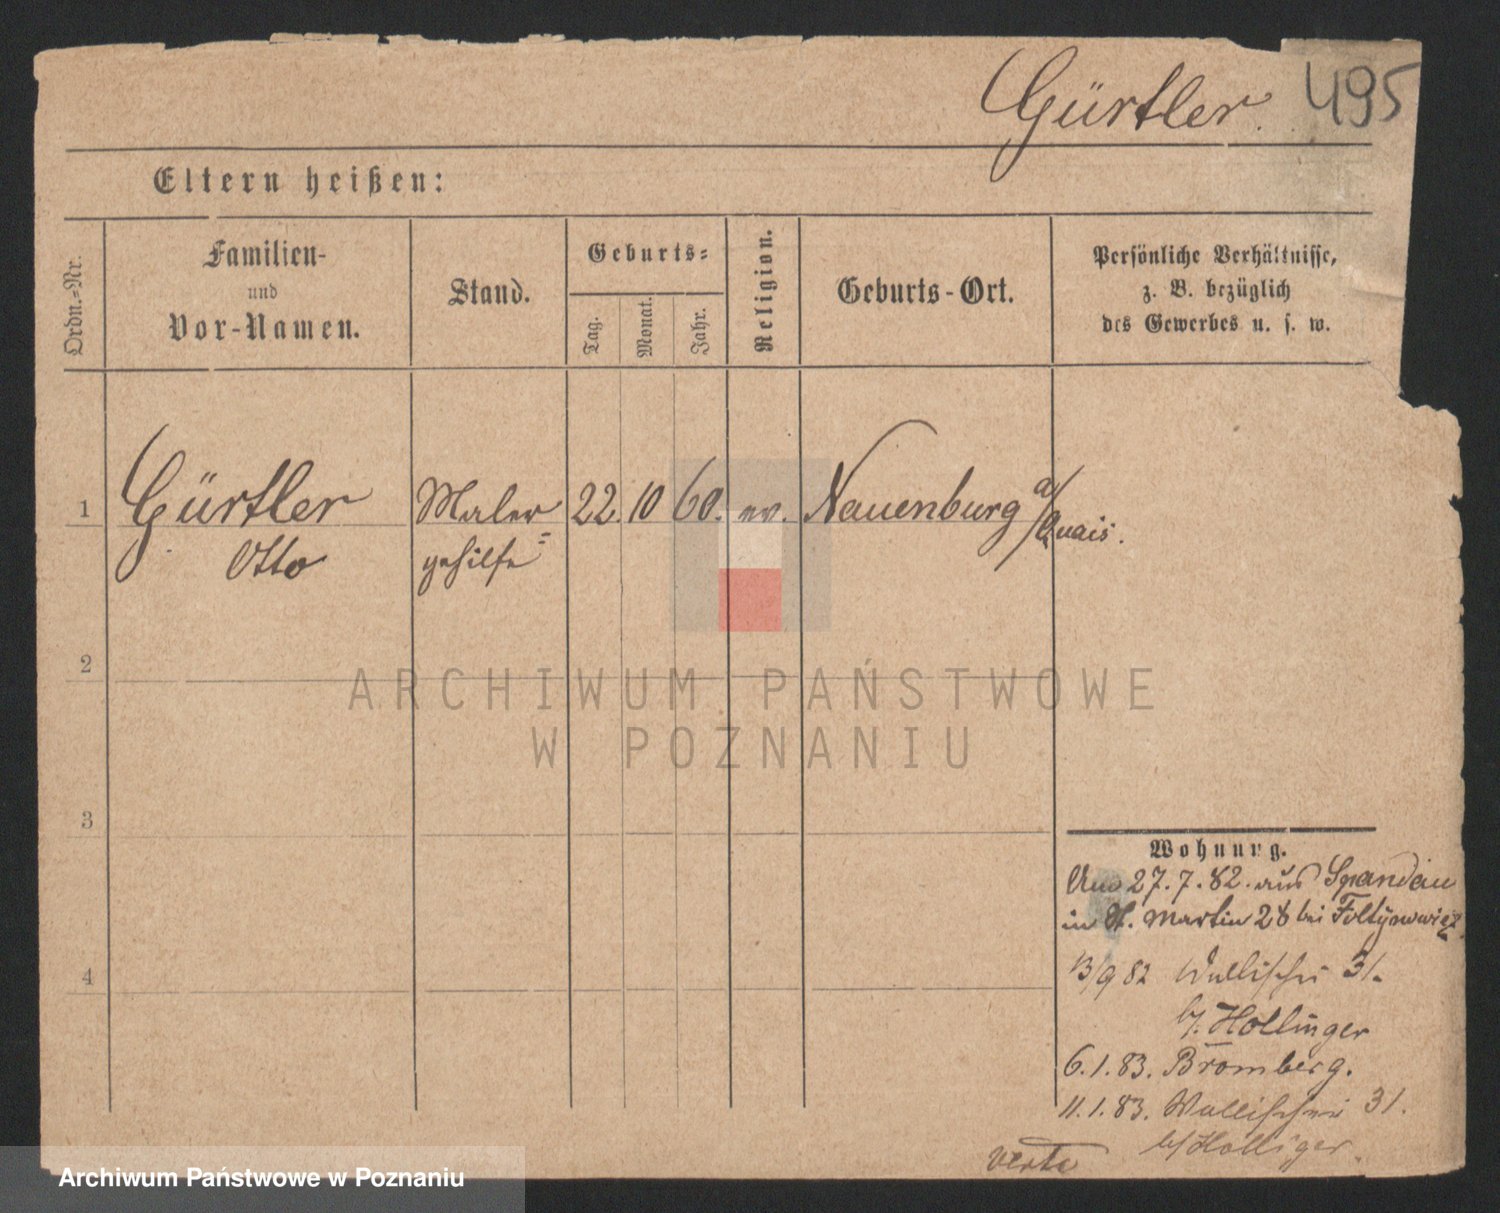 Gürtler. 495
Eltern heißen:
Ordn.=Nr.
Familien-
und
Vor-Namen.
Stand.
Geburts=
Tag.
Monat.
Jahr.
Religion.
Geburts-Ort.
Persönliche Verhältnisse,
z. B. bezüglich
des Gewerbes u. s. w.
1 Gürtler Maler= 22. 10 60. ev. Nauenburg a/
Otto gehilfe Quais.
2
3
4
Wohnung.
27.7.82. aus Spandau
in St. Martin 28 bei
13/9 82 Wallischei 31.
b/. Hollinger
6.1.83. Bromberg.
11.1.83. Wallischei 31.
b/ Holliger.
verte
ARCHIWUM PAŃSTWOWE
W POZNANIU
Archiwum Państwowe w Poznaniu